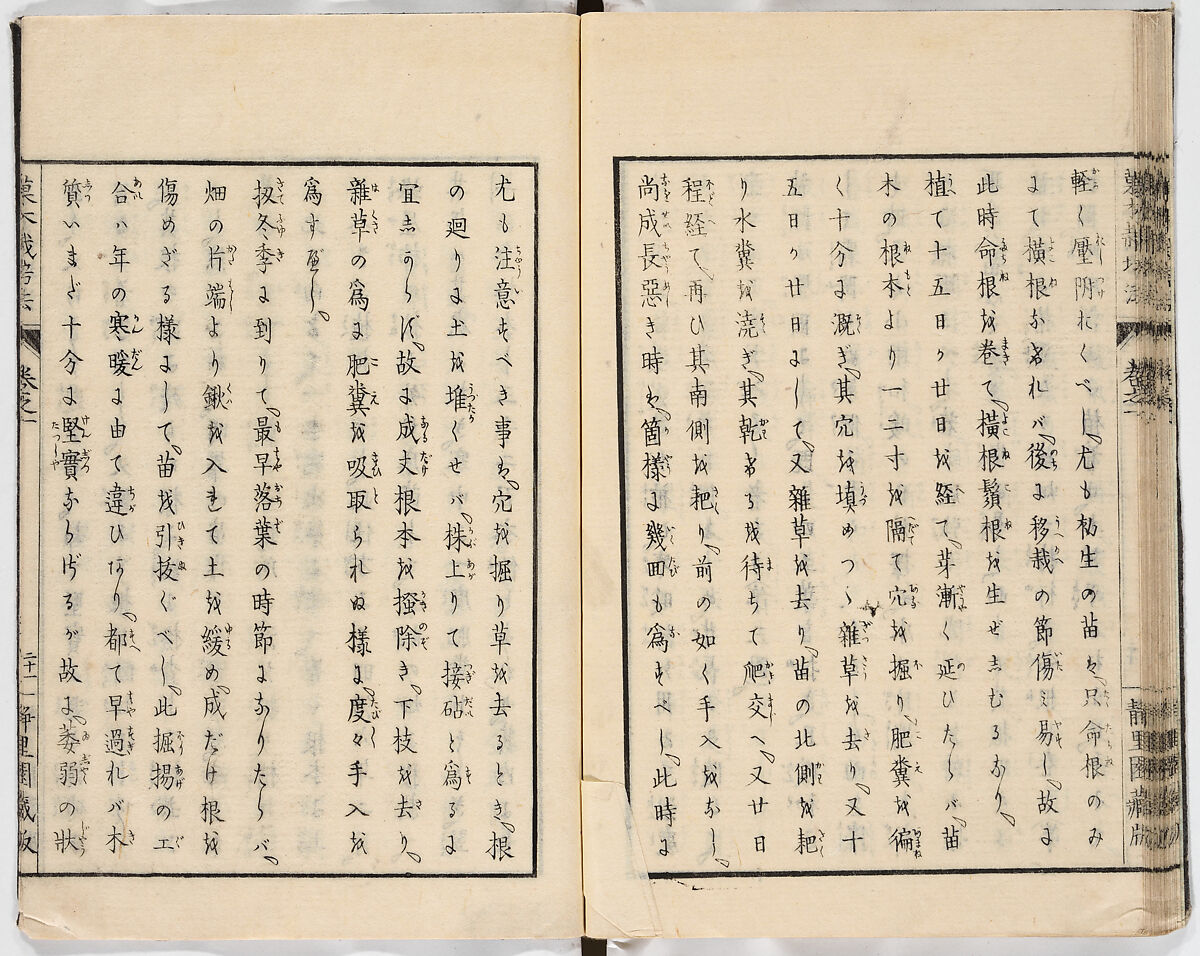 軽く壓附おくべし、尤も杤生の苗ハ、只命根のみ
にて横根なけれバ、後に移栽の節傷ミ易し、故に
此時命根を巻て、横根鬚根を生ぜしむるなり、
植て十五日か廿日を経て、芽漸く延ひたらバ、苗
木の根本より一二寸を隔て穴を掘り、肥糞を徧
く十分に漑ぎ、其穴を填めつゝ雑草を去り、又十
五日か廿日にして、又雑草を去り、苗の北側を耙
り水糞を澆ぎ、其乾けるを待ちて爬交へ、又廿日
程経て、再ひ其南側を耙り、前の如く手入をなし、
尚成長悪き時ハ、箇様に幾回も為すべし、此時に
尤も注意すべき事ハ、穴を掘り草を去るとき、根
の廻りに土を堆くせバ、株上りて接砧と為るに
宜しからず、故に成丈根本を掻除き、下枝を去り、
雑草の為に肥糞を吸取られぬ様に、度々手入を
為すべし、
扨冬季に到りて、最早落葉の時節になりたらバ、
畑の片端より鍬を入れて土を緩め、成だけ根を
傷めざる様にして、苗を引抜くべし、此掘揚の工
合ハ年の寒暖に由て違ひあり、都て早過れバ木
質いまだ十分に堅實ならざるが故に、萎弱の状
巻之一
静里園蔵版
巻之一
二十二
静里園蔵版